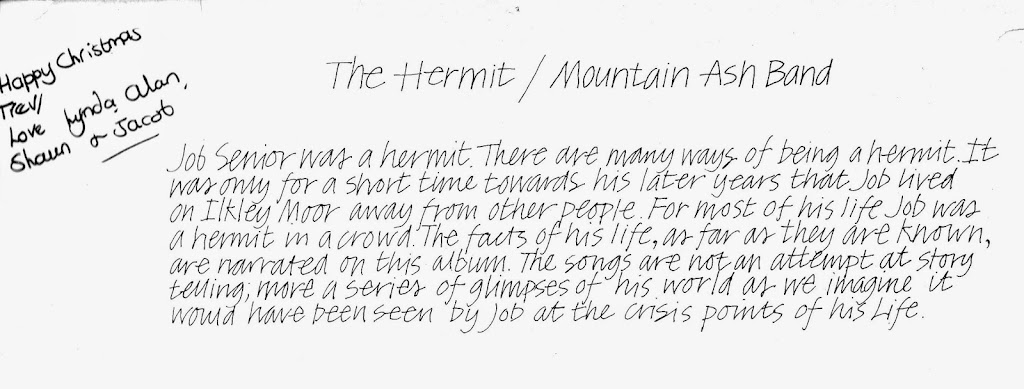 Happy Christmas
Trev
Love Lynda, Alan,
Shaun & Jacob
The Hermit / Mountain Ash Band
Job Senior was a hermit. There are many ways of being a hermit. It
was only for a short time towards his later years that Job lived
on Ilkley Moor away from other people. For most of his life Job was
a hermit in a crowd. The facts of his life, as far as they are known,
are narrated on this album. The songs are not an attempt at story
telling; more a series of glimpses of his world as we imagine it
would have been seen by Job at the crisis points of his Life.